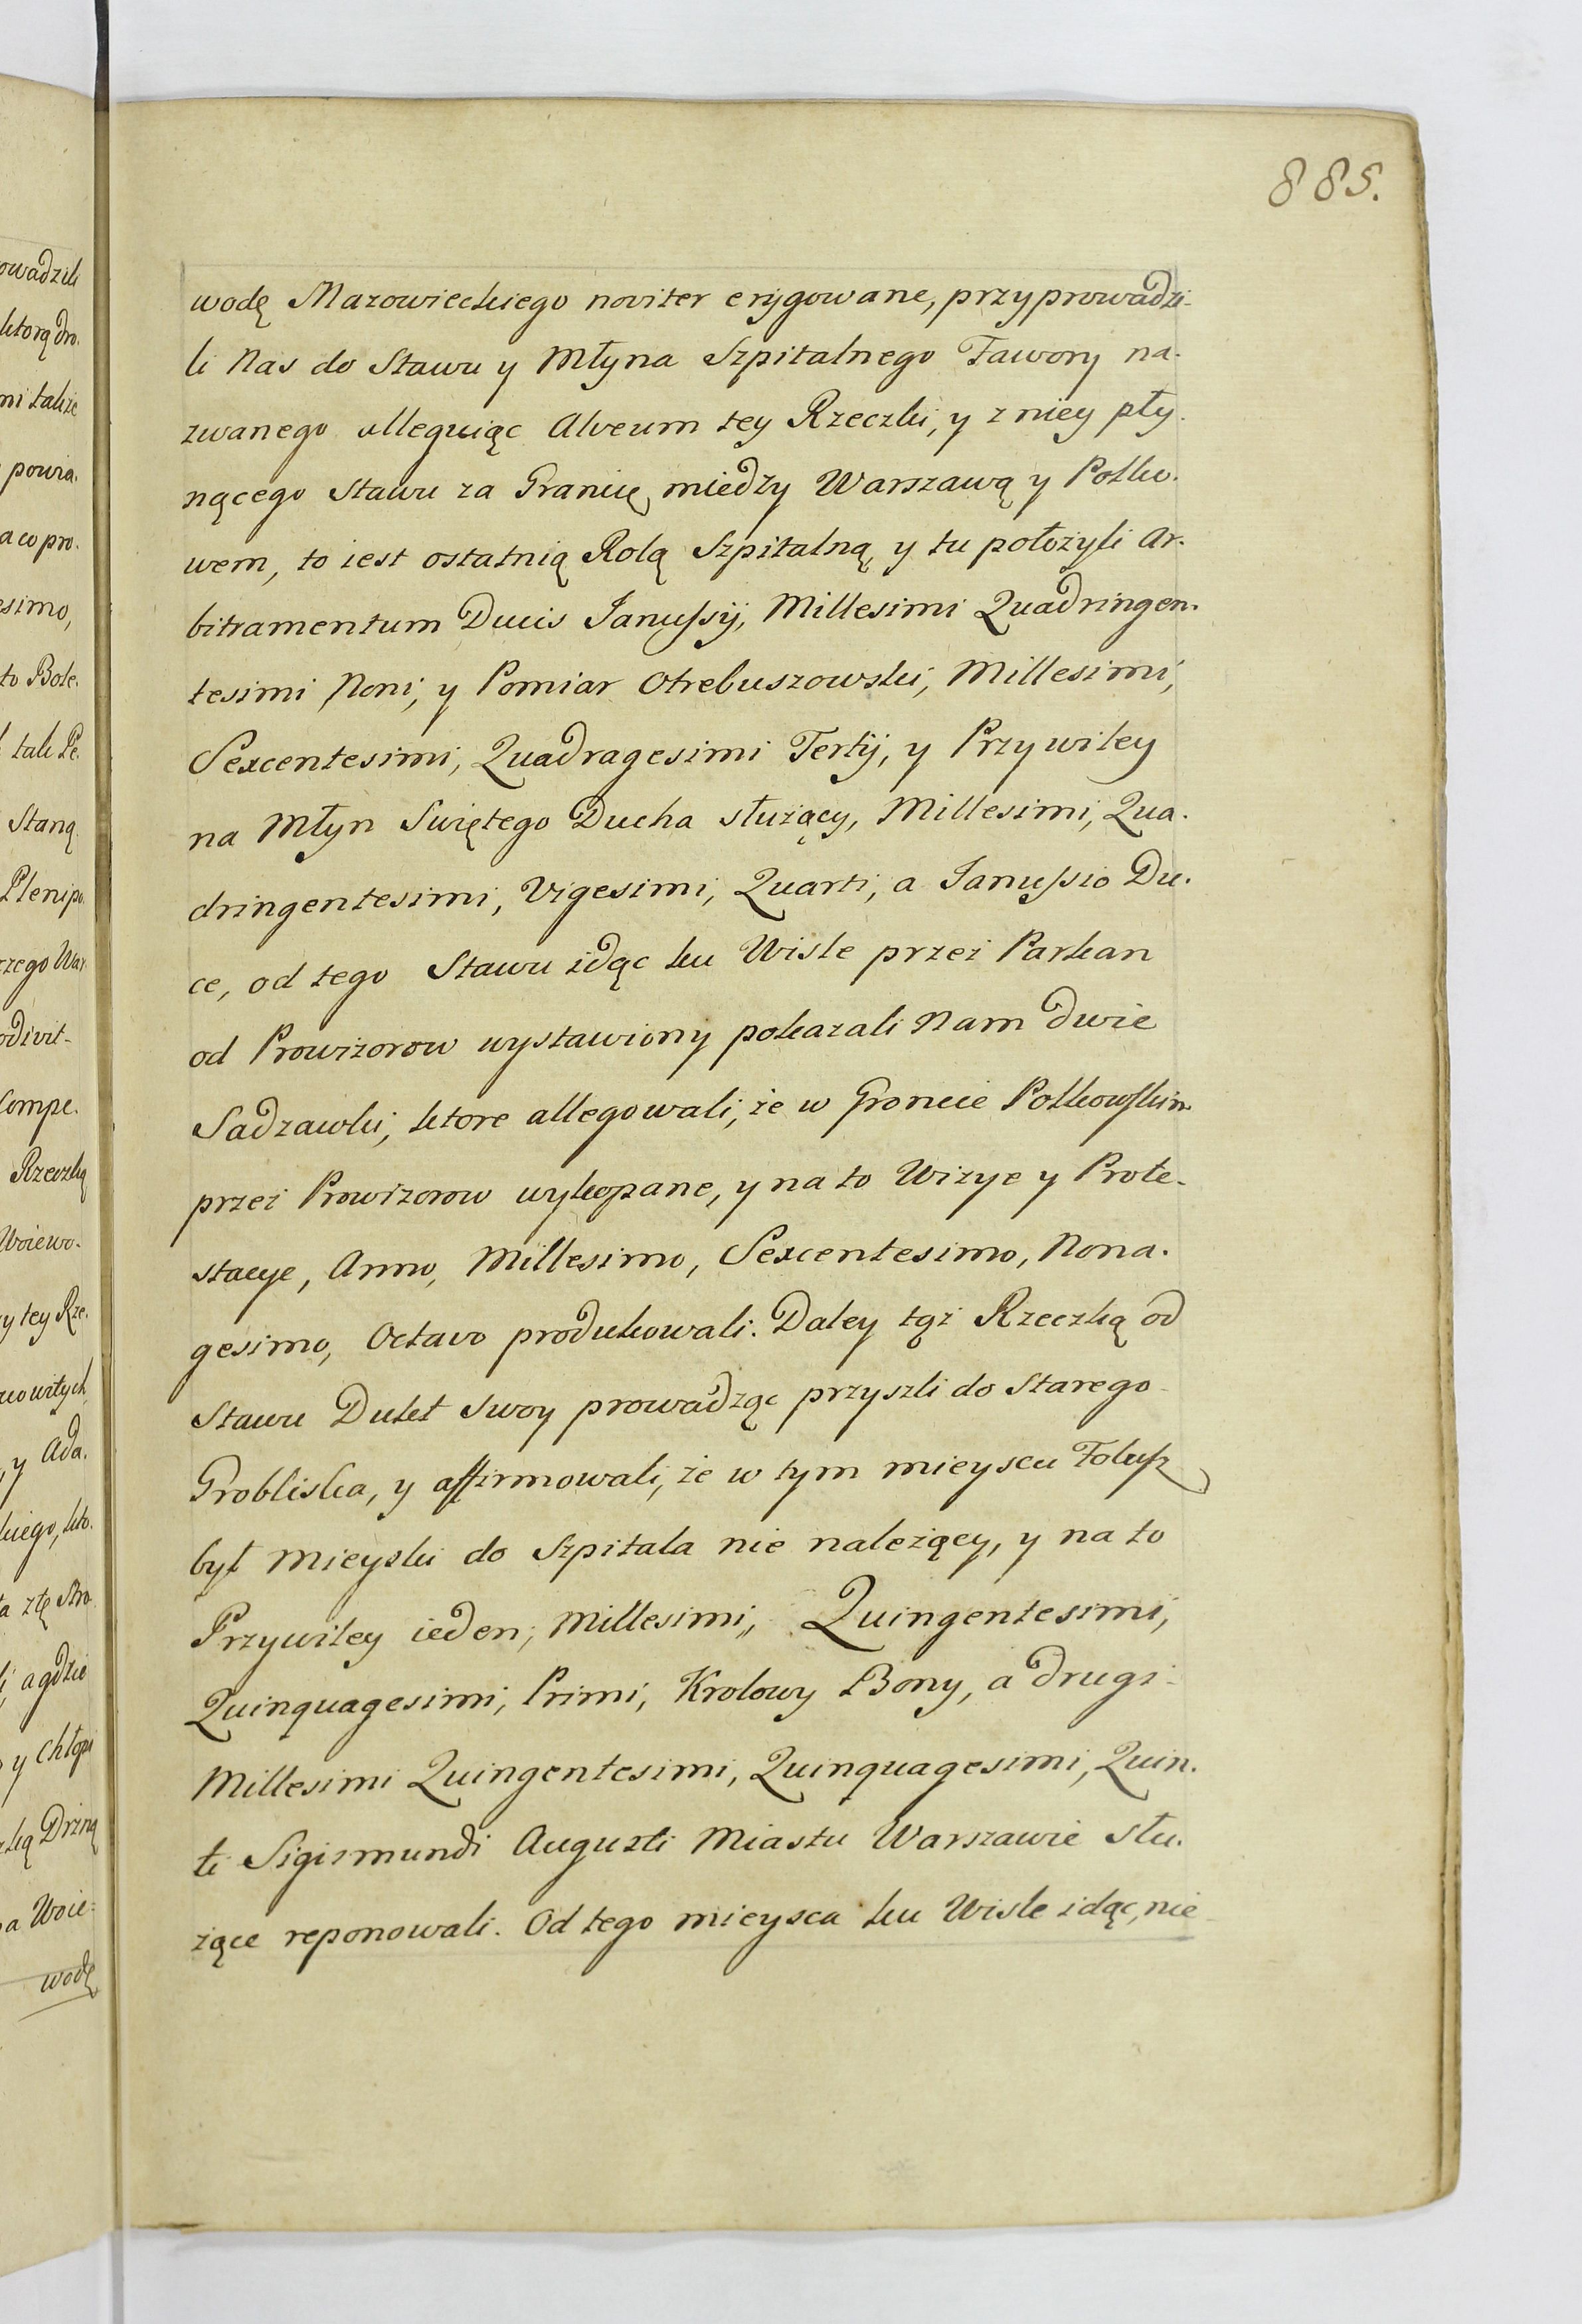 885.
wodę Mazowieckiego noviter erygowane, przyprowadzi-
li Nas do Stawu y Młyna Szpitalnego Tawory na-
zwanego alleguiąc Alveum tey Rzeczki, y z niey pły-
nącego Stawu za Granicę między Warszawą y Polko-
wem, to iest ostatnią Rolą Szpitalną, y tu położyli Ar-
bitramentum Ducis Janussij, Millesimi Quadringen-
tesimi Noni, y Pomiar Otrebuszowski, Millesimi,
Sexcentesimi, Quadragesimi Tertij, y Przywiley
na Młyn Swiętego Ducha służący, Millesimi, Qua-
dringentesimi, Vigesimi, Quarti, a Janussio Du-
ce, od tego Stawu idąc ku Wisle przez Parkan
od Prowizorow wystawiony pokazali Nam dwie
Sadzawki, ktore allegowali, że w Groncie Polkowskim
przez Prowizorow wykopane, y na to Wizye y Prote-
stacye, Anno, Millesimo, Sexcentesimo, Nona-
gesimo, Octavo produkowali. Daley tąż Rzeczką od
Stawu Dukt swoy prowadząc przyszli do Starego
Grobliska, y affirmowali, że w tym mieyscu Folusz
był Mieyski do Szpitala nie należący, y na to
Przywiley ieden, Millesimi,, Quingentesimi,
Quinquagesimi, Primi, Krolowy Bony, a drugi
Millesimi Quingentesimi, Quinquagesimi, Quin-
ti Sigismundi Augusti Miastu Warszawie słu-
żące reponowali. Od tego mieysca ku Wisle idąc, nie